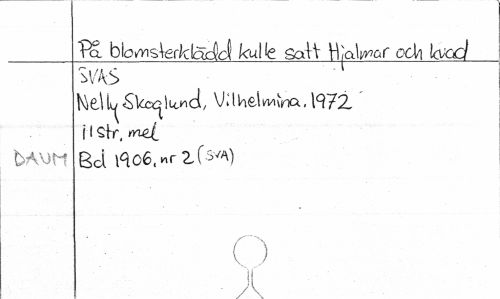 På blomsterklädd kulle satt Hjalmar och kvad
SVAS
Nelly Skoglund, Vilhelmina. 1972
11 str, mel
DAUM Bd 1906, nr 2 (SVA)